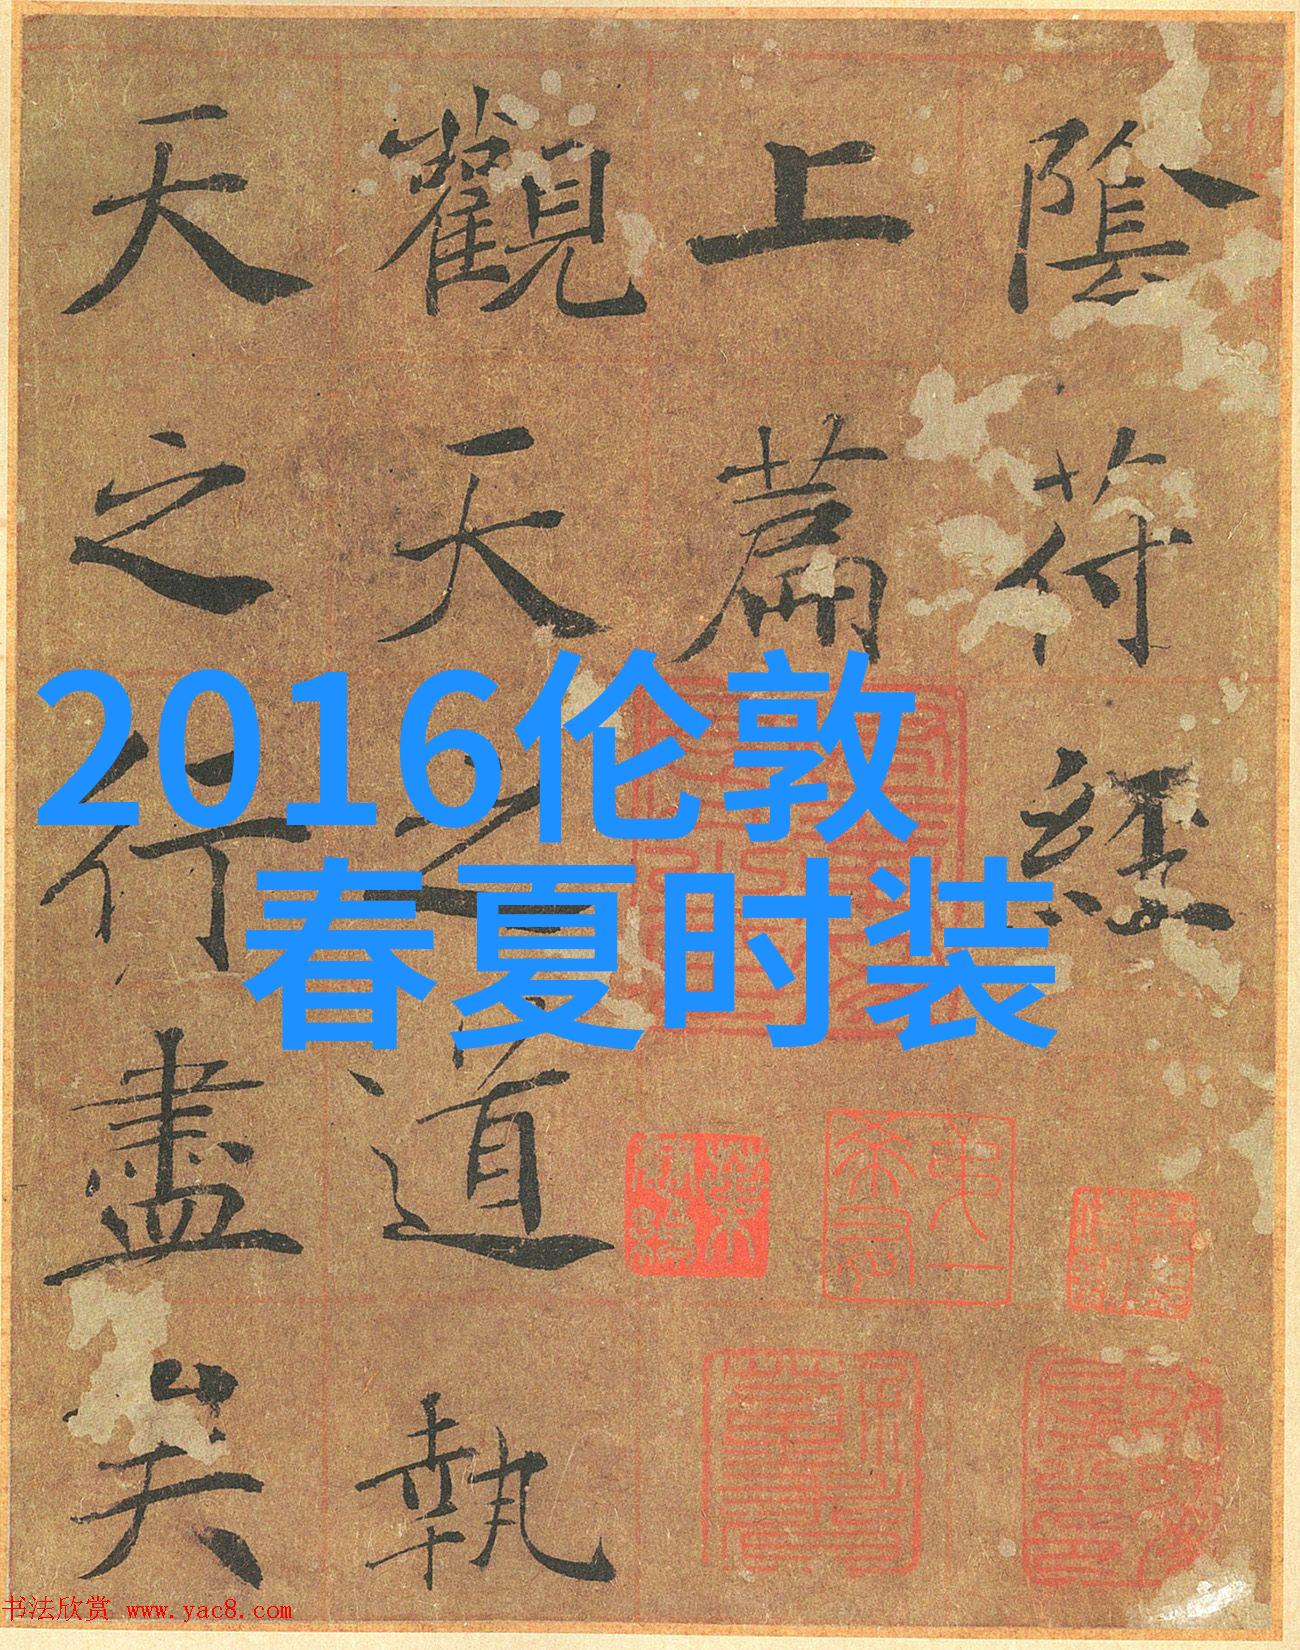 陰符經
上篇
觀天之道執
天之行盡矣
2016伦敦
春夏时装
书法欣赏 www.yac8.com